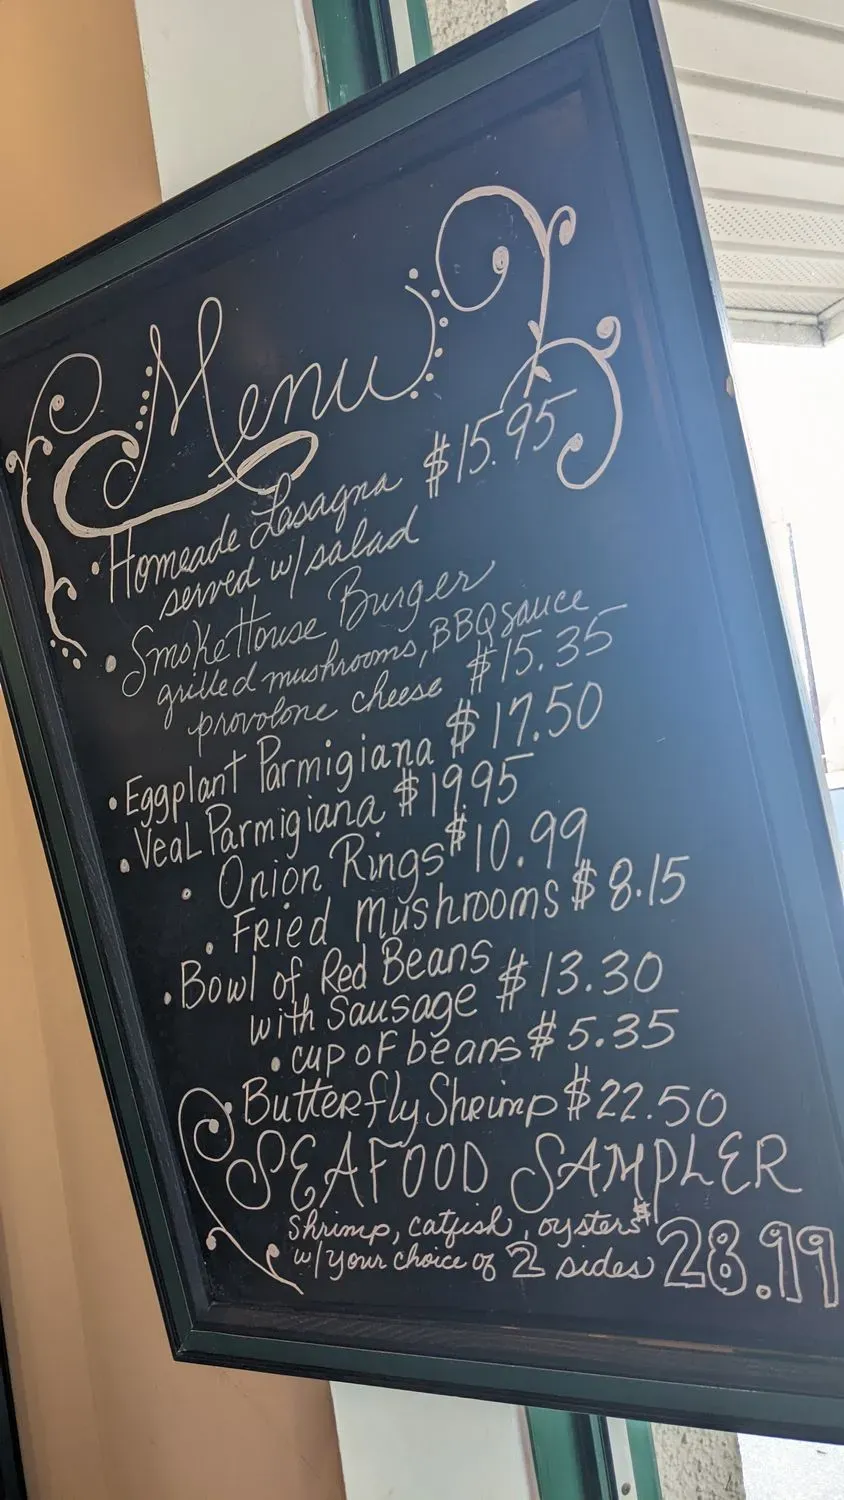 Menu
• Homeade Lasagna $15.95
served w/salad
• SmokeHouse Burger
grilled mushrooms, BBQ sauce
provolone cheese $15.35
• Eggplant Parmigiana $17.50
• Veal Parmigiana $19.95
• Onion Rings $10.99
• Fried Mushrooms $8.15
• Bowl of Red Beans
with Sausage $13.30
• cup of beans $5.35
• Butterfly Shrimp $22.50
SEAFOOD SAMPLER
shrimp, catfish, oysters $
w/your choice of 2 sides 28.99